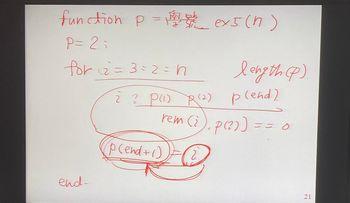 function p = 學號_ex5(n)
p= 2;
for i = 3:2:n
length(p)
i ? p(1) p(2) p(end)
rem(i, p(?)) == 0
p(end+1) = i
end
21